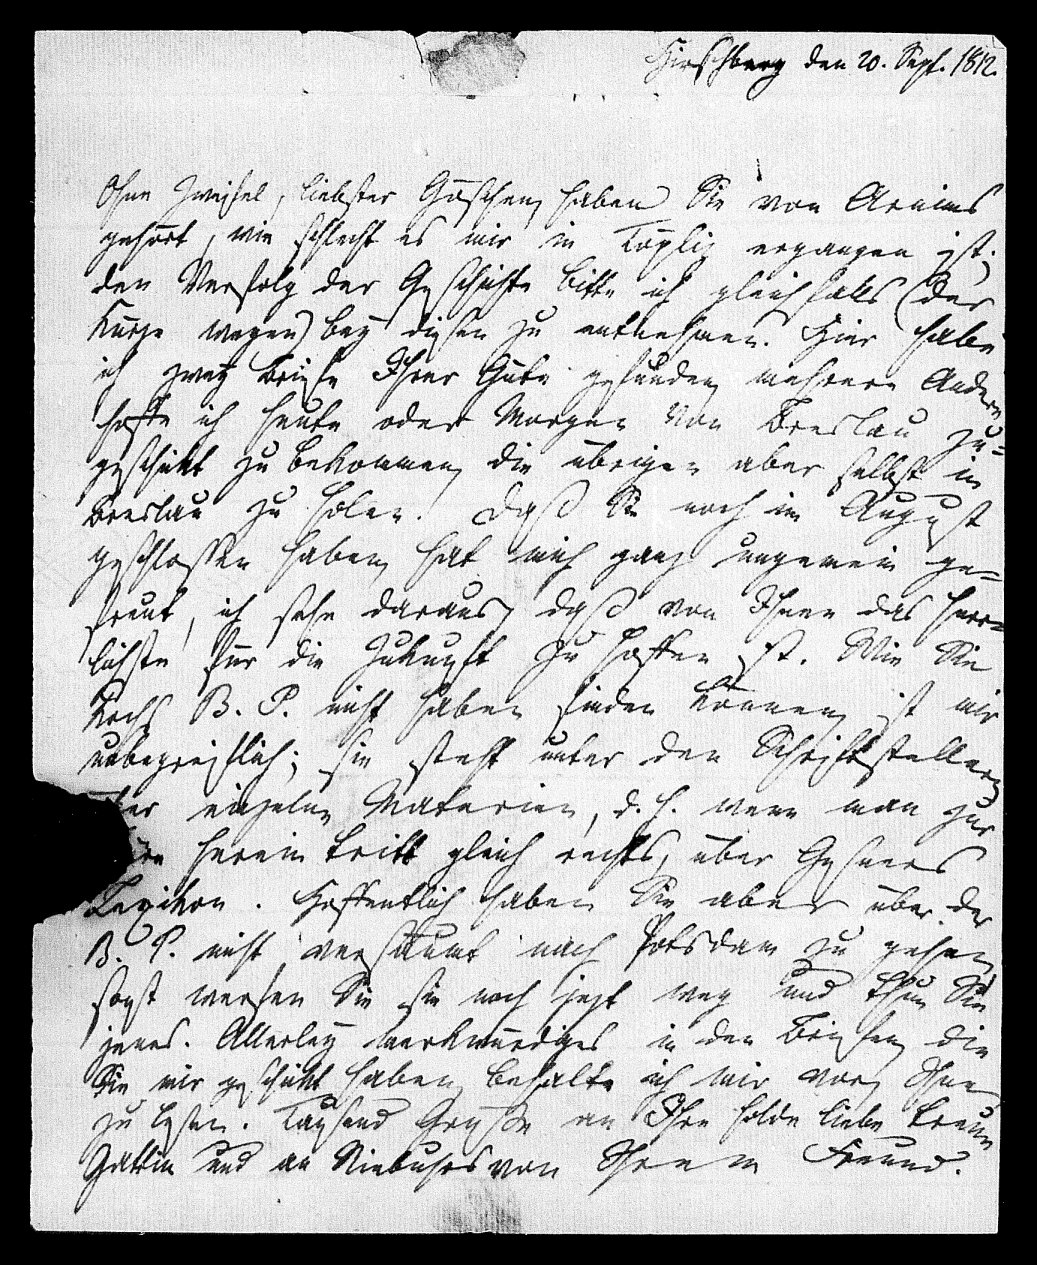 Hirschberg den 20. Sept. 1812.
Ohne Zweifel, liebster Göschen, haben Sie von Arnims
gehört, wie schlecht es mir in Töpliz ergangen ist;
den Verfolg der Geschichte bitte ich gleichfalls (der
Kürze wegen) bey diesen zu entnehmen. Hier habe
ich zwey Briefe Ihrer Güte gefunden, mehrere Andere
hoffe ich heute oder Morgen von Breslau zu-
geschikt zu bekommen, die übrigen aber selbst in
Breslau zu holen. Daß Sie noch im August
geschlossen haben, hat mich ganz ungemein ge-
freut, ich sehe daraus, daß von Ihnen das herr-
lichste für die Zukunft zu hoffen ist. Wie Sie
Kochs B. P. nicht haben finden können, ist mir
unbegreiflich; sie steht unter den Schriftstellern
über einzelne Materien, d. h. wenn man zur
Thüre herein tritt gleich rechts, über Gesners
Lexikon. Hoffentlich haben Sie aber über der
B. P. nicht versäumt nach Potsdam zu gehen,
sonst werfen Sie sie noch jezt weg und thun Sie
jenes. Allerley merkwürdiges in den Briefen, die
Sie mir geschikt haben, behalte ich mir vor, Ihnen
zu lesen. Tausend Grüße an Ihre holde liebe treue
Gattin und an Niebuhrs von Ihrem Freund.